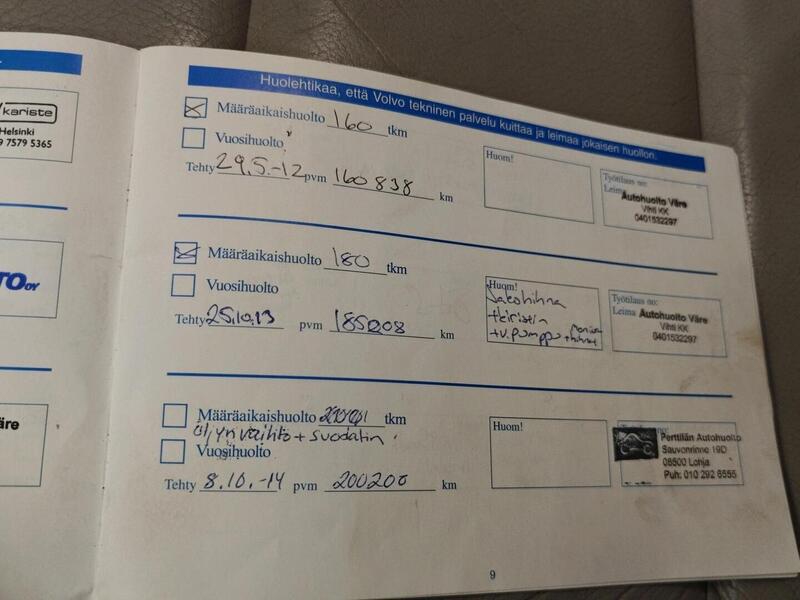 kariste
Helsinki
9 7579 5365
TO OY
äre
Huolehtikaa, että Volvo tekninen palvelu kuittaa ja leimaa jokaisen huollon.
Määräaikaishuolto 160 tkm
Vuosihuolto
Tehty 29.5.-12 pvm 160838 km
Huom!
Työtilaus no:
Leima Autohuolto Väre
Vihti KK
0401532297
Määräaikaishuolto 180 tkm
Vuosihuolto
Tehty 25.10.13 pvm 185208 km
Huom!
Jakohihna
+kiristin
+v.pumppu +
Työtilaus no:
Leima Autohuolto Väre
Vihti KK
0401532297
Määräaikaishuolto tkm
öljynvaihto + suodatin
Vuosihuolto
Tehty 8.10.-14 pvm 200200 km
Huom!
Perttilän Autohuolto
Sauvonrinne 19D
08500 Lohja
Puh: 010 292 6555
9